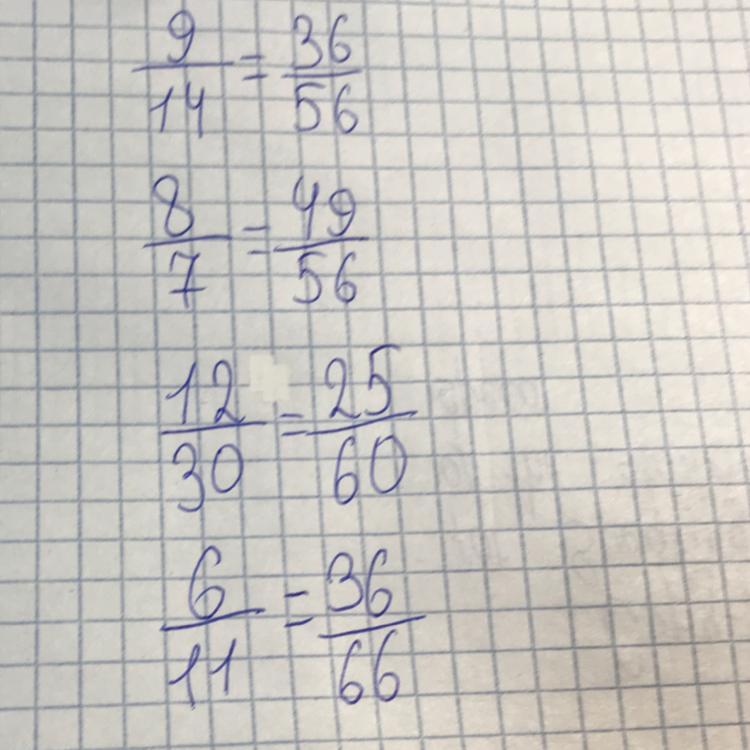 9/14 = 36/56
8/7 = 49/56
12/30 = 25/60
6/11 = 36/66